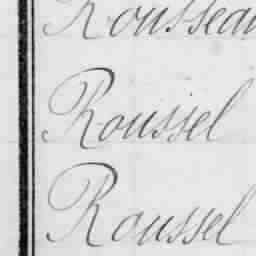 Rousseau
Roussel
Roussel